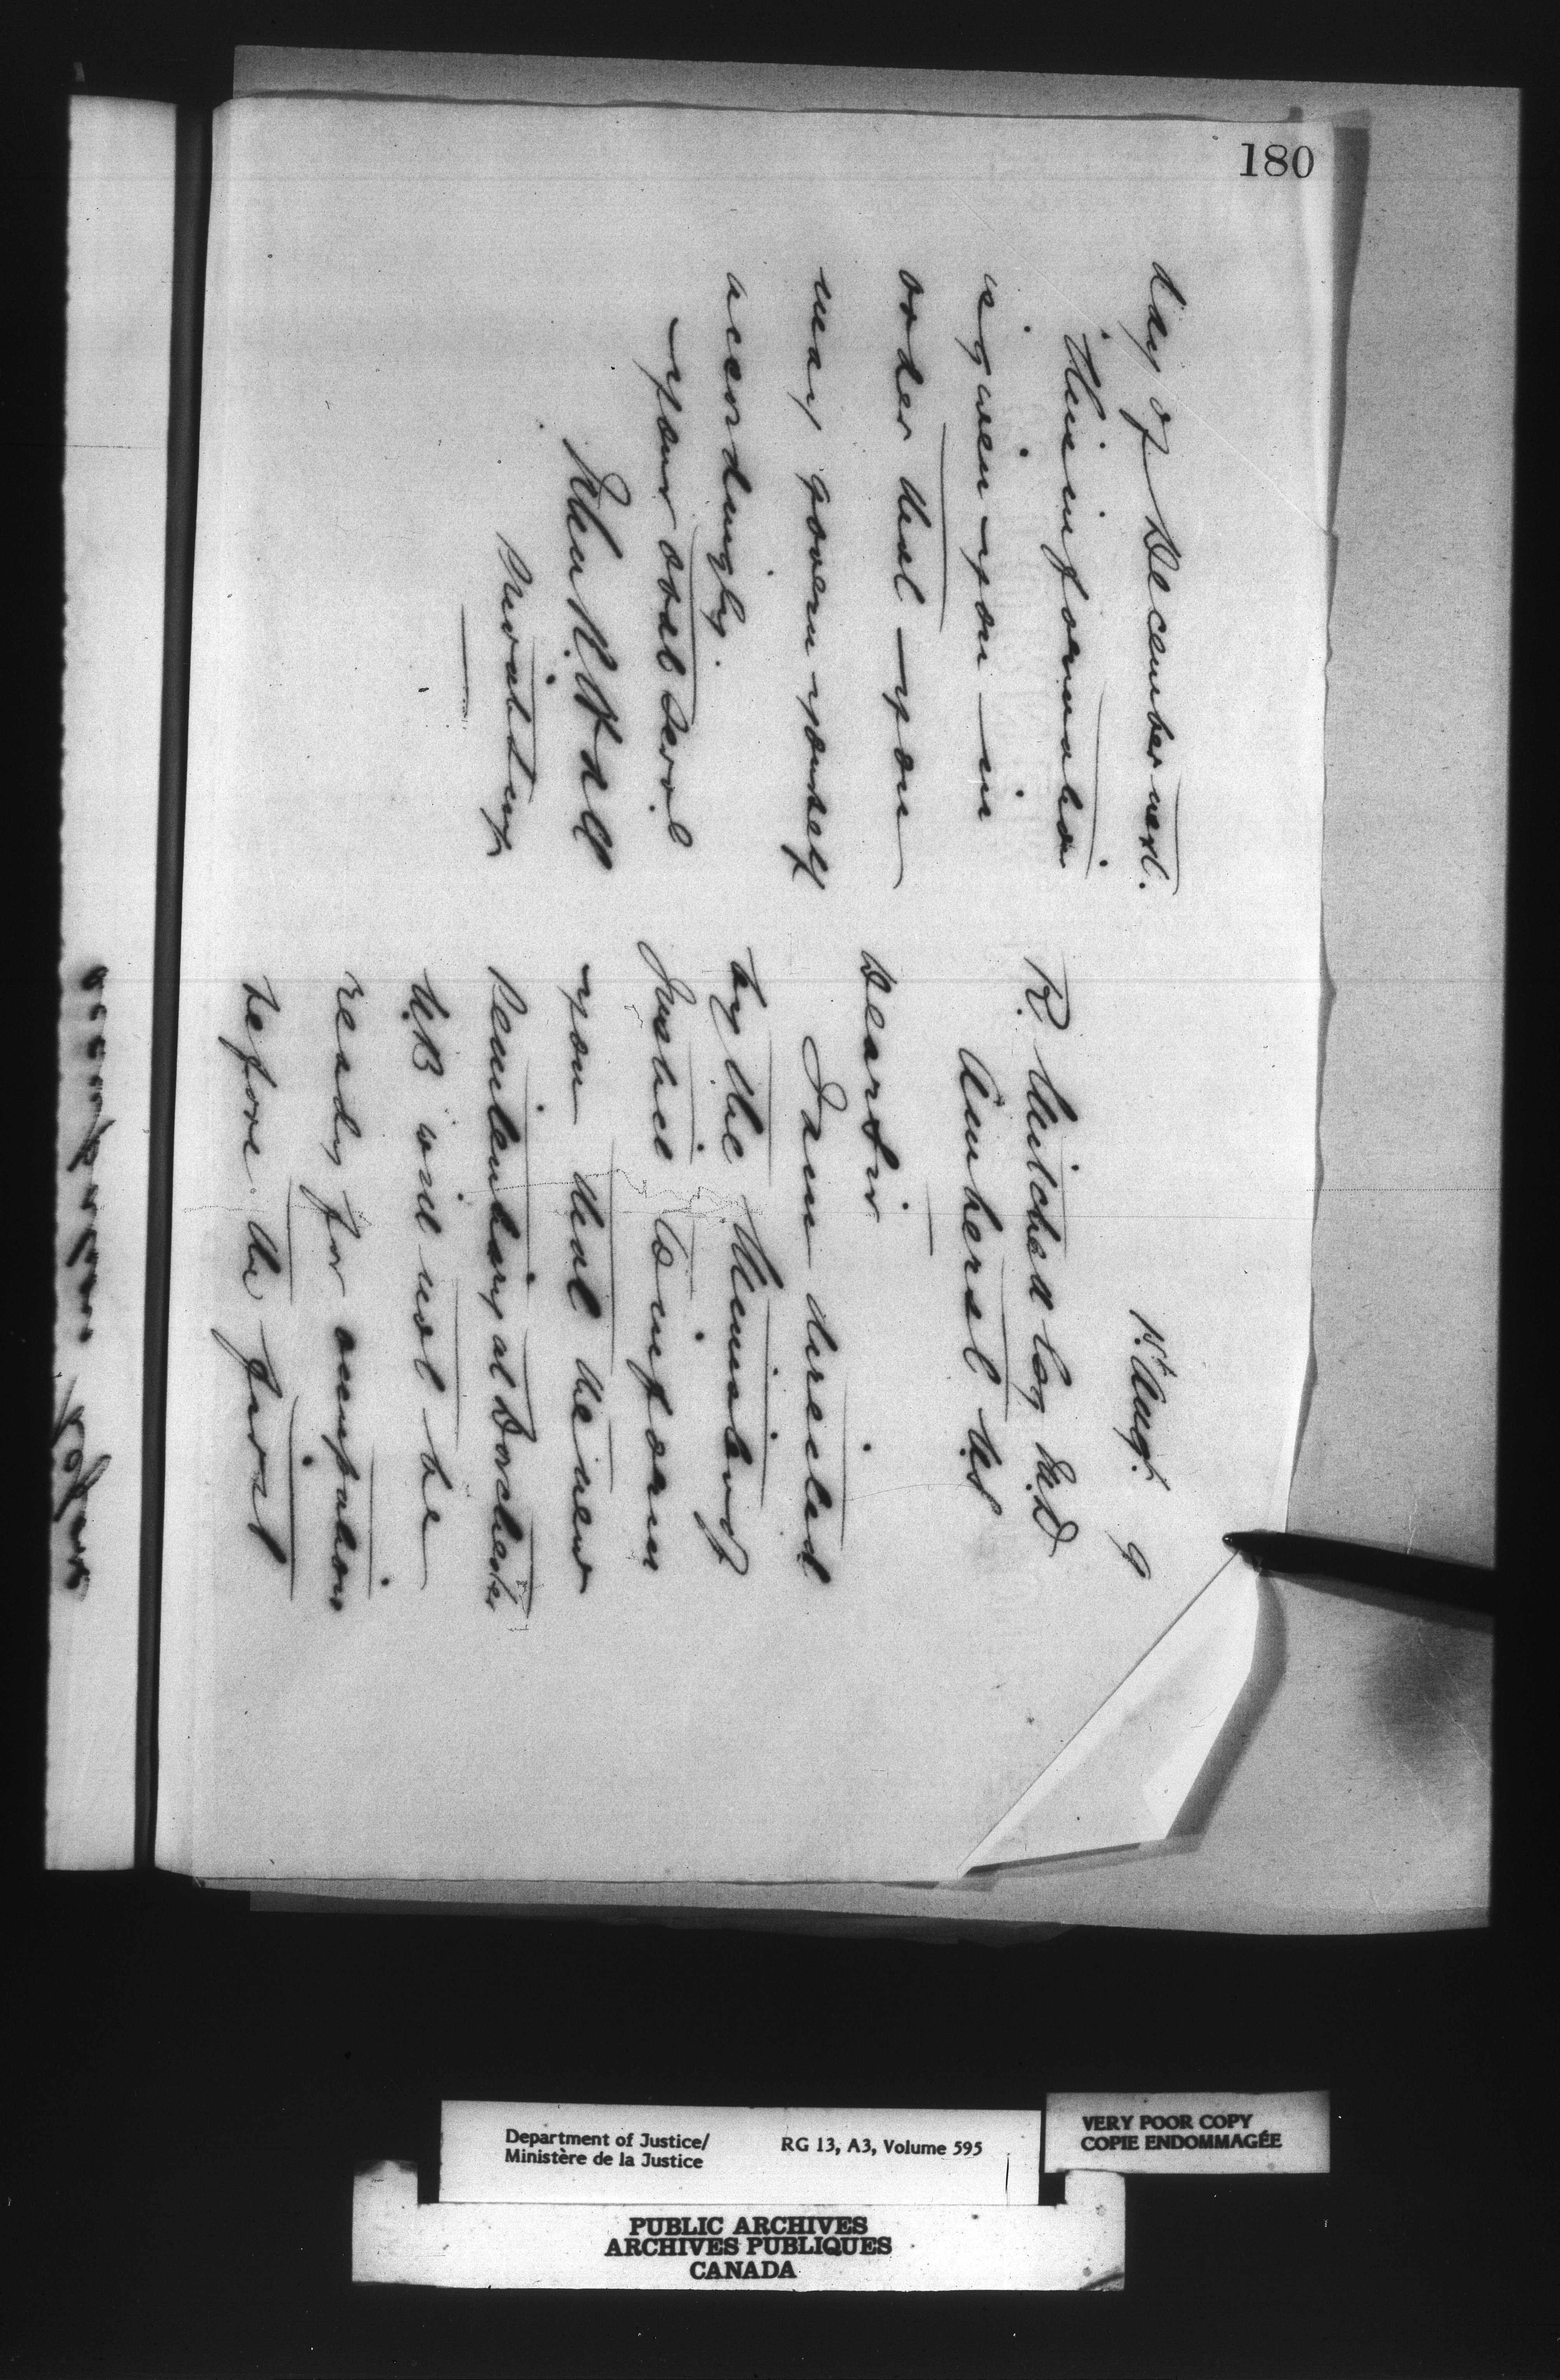 180
1st Augt. 9
R. Mitchell Esq M.D
Amherst N.S
Dear Sir
I am directed
by the Minister of
Justice to inform
you that the new
Penitentiary at Dorchester
N.B will not be
ready for occupation
before the first
day of December next.
This information
is given you in
order that you
may govern yourself
accordingly.
your obed Servt
Department of Justice/
Ministère de la Justice
RG 13, A3, Volume 595
VERY POOR COPY
COPIE ENDOMMAGÉE
PUBLIC ARCHIVES
ARCHIVES PUBLIQUES
CANADA